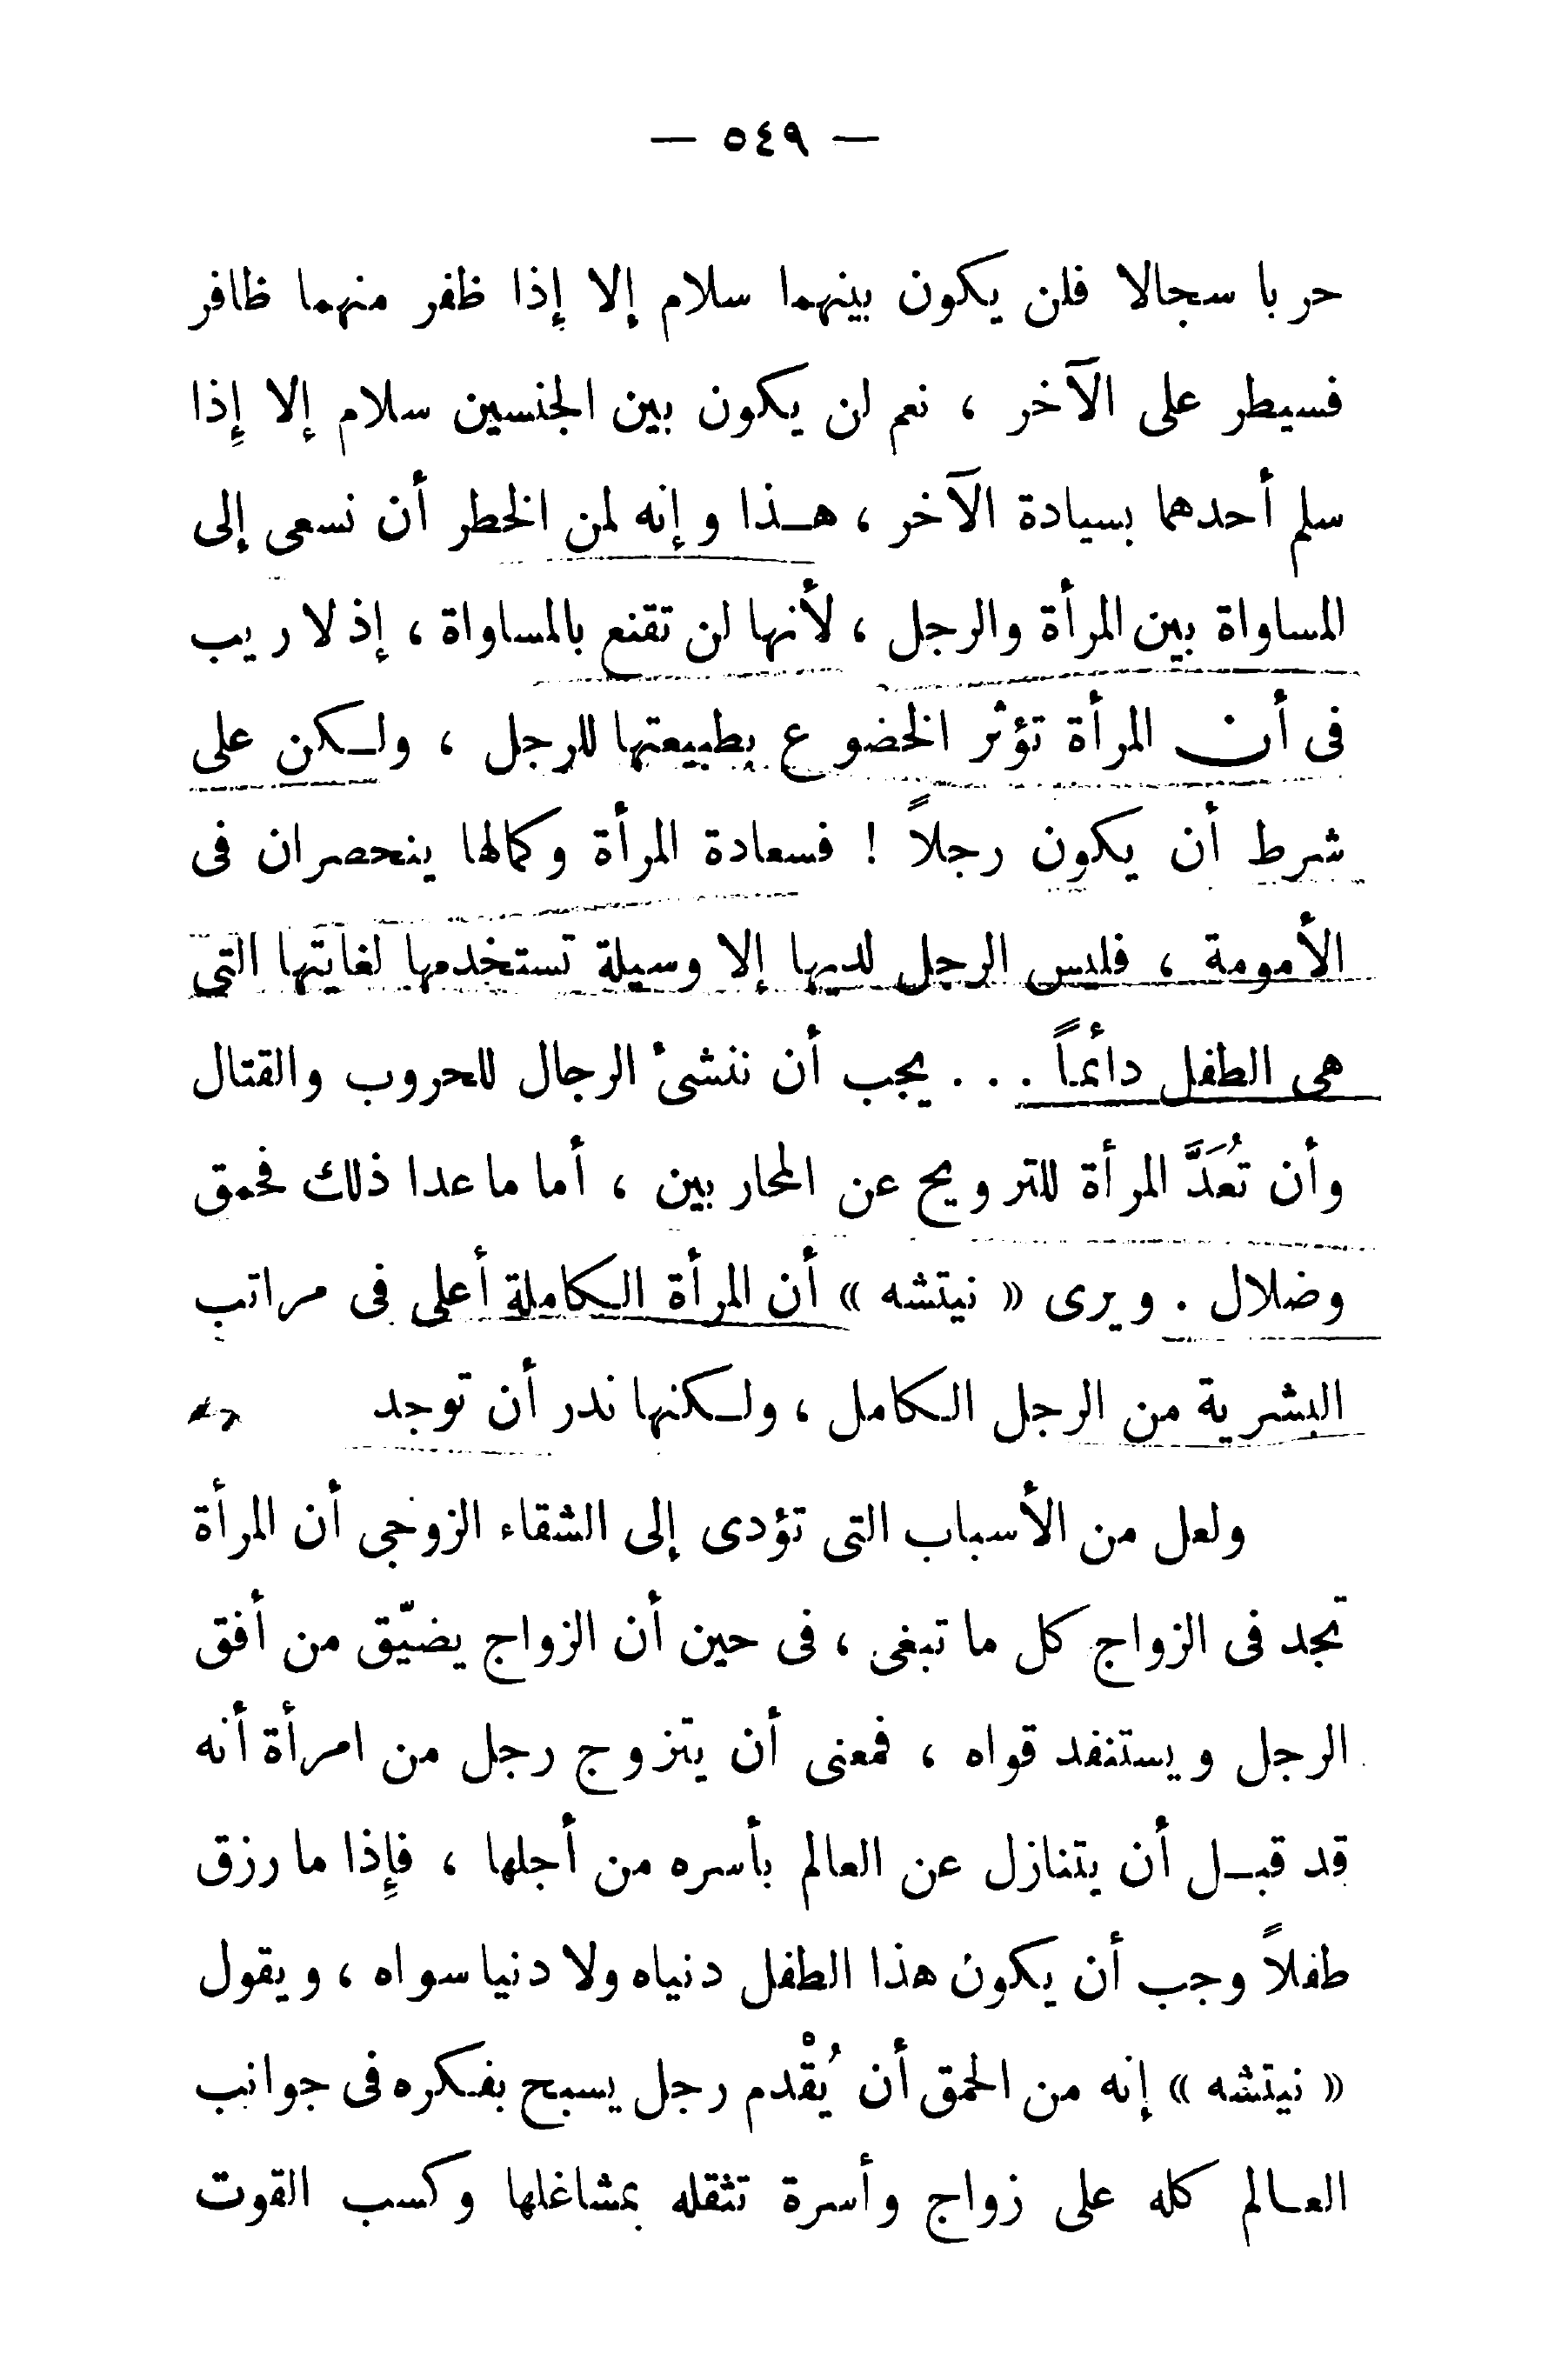 — ٥٤٩ —
حربا سجالا فلن يكون بينهما سلام إلا إذا ظفر منهما ظافر
فسيطر على الآخر ، نعم لن يكون بين الجنسين سلام إلا إذا
سلم أحدهما بسيادة الآخر ، هـذا وإنه لمن الخطر أن نسعى إلى
المساواة بين المرأة والرجل ، لأنها لن تقنع بالمساواة ، إذ لا ريب
فى أن المرأة تؤثر الخضوع بطبيعتها للرجل ، ولـكن على
شرط أن يكون رجلاً ! فسعادة المرأة وكمالها ينحصران فى
الأمومة ، فليس الرجل لديها إلا وسيلة تستخدمها لغايتها التى
هى الطفل دائماً . . . يجب أن ننشئ الرجال للحروب والقتال
وأن تُعَدَّ المرأة للترويح عن المحاربين ، أما ما عدا ذلك فحمق
وضلال . ويرى « نيتشه » أن المرأة الـكاملة أعلى فى مراتب
البشرية من الرجل الـكامل ، ولـكنها ندر أن توجد
ولعل من الأسباب التى تؤدى إلى الشقاء الزوجى أن المرأة
تجد فى الزواج كل ما تبغى ، فى حين أن الزواج يضيّق من أفق
الرجل ويستنفد قواه ، فمعنى أن يتزوج رجل من امرأة أنه
قد قبـل أن يتنازل عن العالم بأسره من أجلها ، فإِذا ما رزق
طفلاً وجب أن يكون هذا الطفل دنياه ولا دنيا سواه ، ويقول
« نيتشه » إنه من الحمق أن يُقْدم رجل يسبح بفـكره فى جوانب
العـالم كله على زواج وأسرة تثقله بمشاغلها وكسب القوت